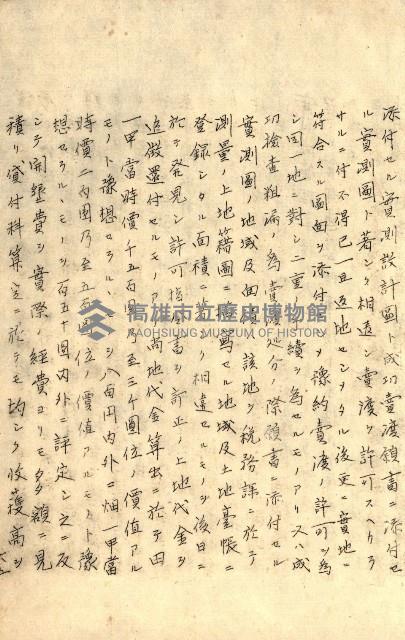 添付セル實測設計圖ト成功賣渡願書ニ添付セ
ル實測圖ト著シク相違シ賣渡ヲ許可スヘカラ
サルニ付不得已一旦返地セシメタル後更ニ實地ニ
符合スル圖面ヲ添付 メ豫約賣渡ノ許可ヲ為
シ同一地ニ對シ二重 續ヲ為セルモノアリ又ハ成
功檢査粗漏ノ為賣渡處分ノ際願書ニ添付セル
實測圖ノ地域及面 該地ヲ稅務課ニ於テ
測量ノ上地籍圖ニ 寫セル地域及土地臺帳ニ
登錄シタル面積ニ 相違セルモノヲ後日ニ
於テ発見シ許可指 書ヲ訂正ノ上地代金ヲ
追徴還付セルモノア 賣地代金算出ニ於テ田
一甲當時價千五百圓乃至三千圓位ノ價値アル
モノト豫想セラルヽ ヲ八百円内外ニ畑一甲當
時價二百圓乃至五百圓位ノ價値アルモノト豫
想セラルヽモノヲ百五十圓内外ニ評定シ之ニ反
シテ開墾費ヲ實際ノ經費ヨリモ多額ニ見
積リ貸付料算定ニ於テモ均シク收獲高ヲ
高雄市立歷史博物館
KAOHSIUNG MUSEUM OF HISTORY